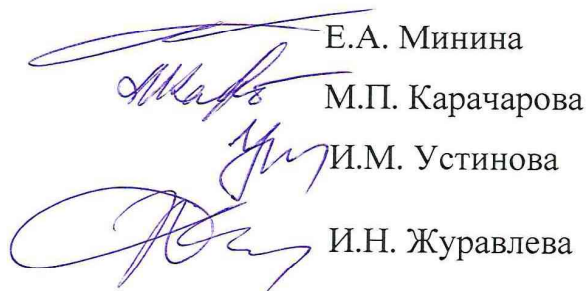 Е.А. Минина
М.П. Карачарова
И.М. Устинова
И.Н. Журавлева